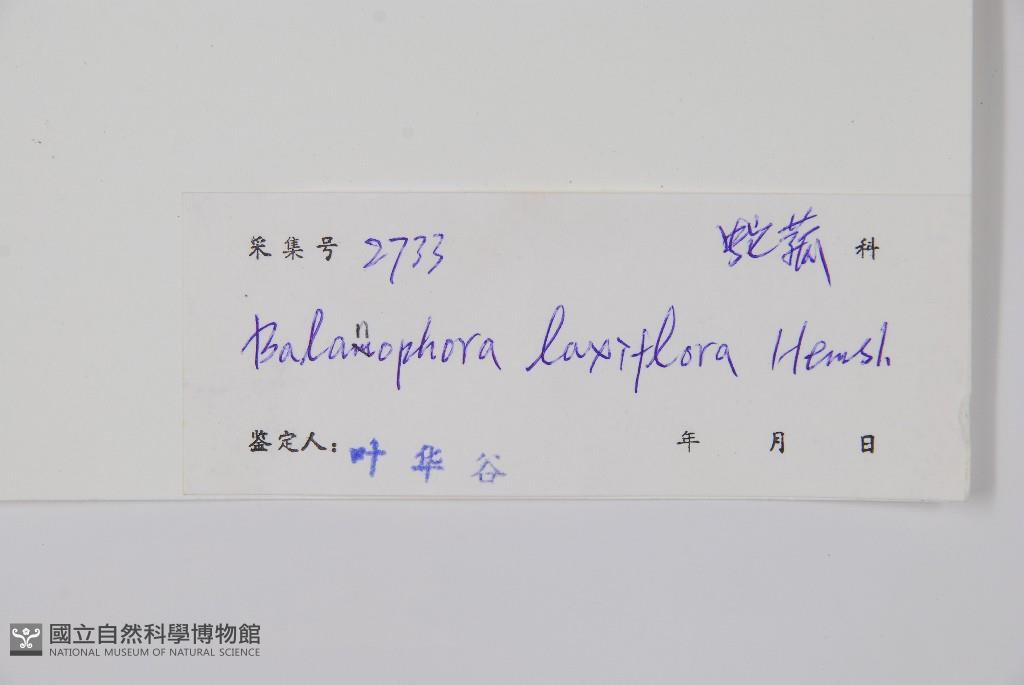 采集号 2733 蛇菰 科
Balanophora laxiflora Hemsl.
鉴定人: 叶华谷 年 月 日
國立自然科學博物館
NATIONAL MUSEUM OF NATURAL SCIENCE